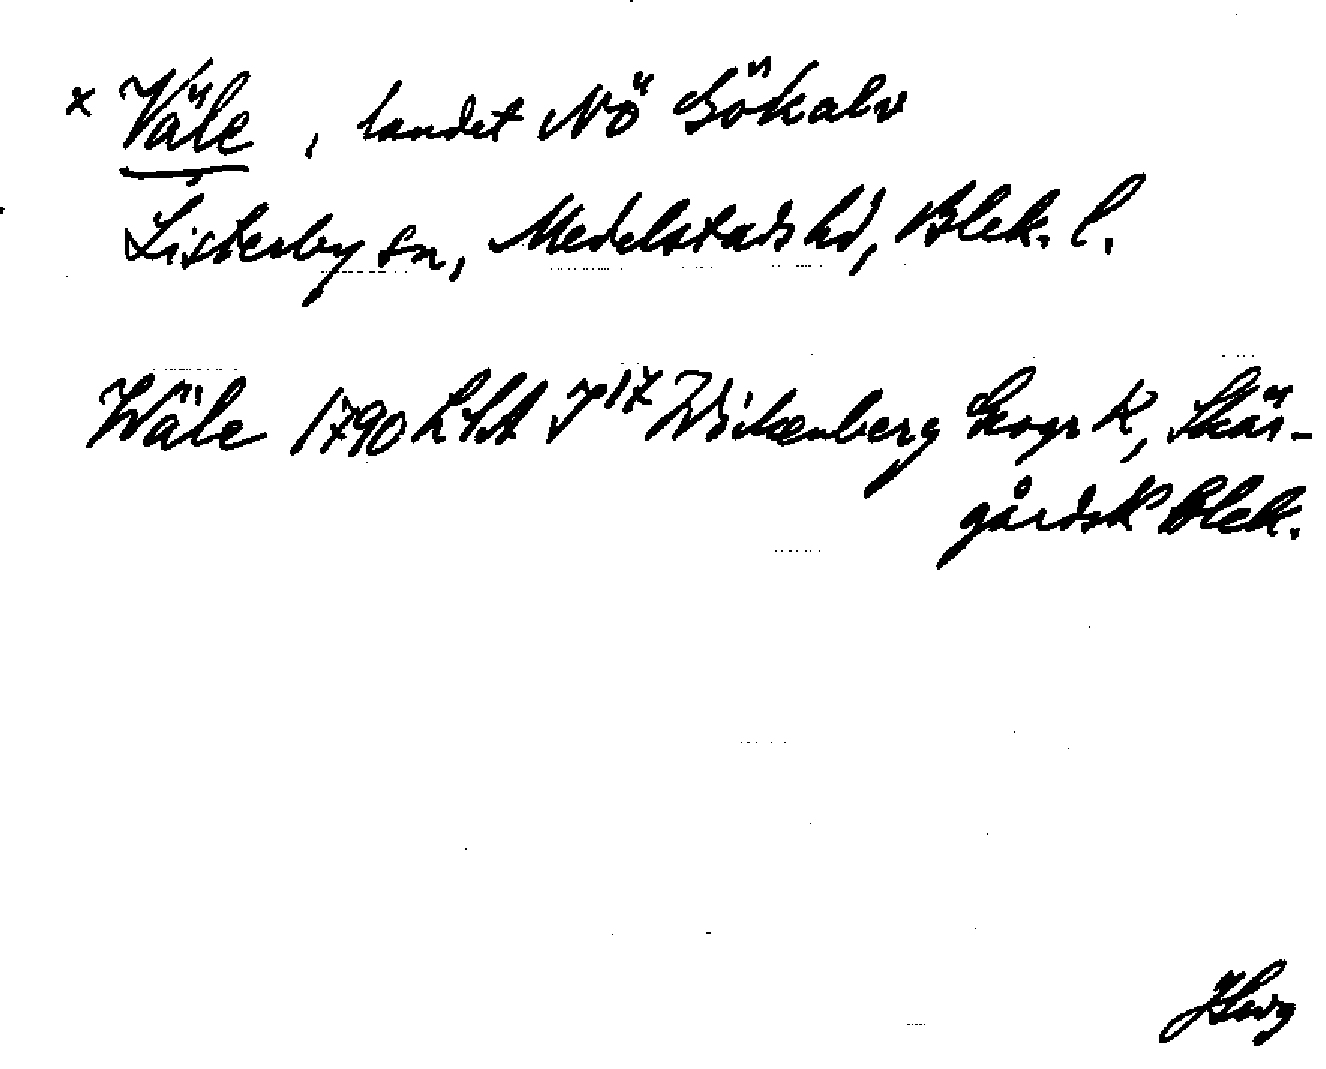 x Väle, landet NÖ Gökalv
Listerby sn, Medelstads hd, Blek. l.
Wäle 1790 LSA J 17 Wickenberg Geogr K, Skär-
gårdsK Blek.